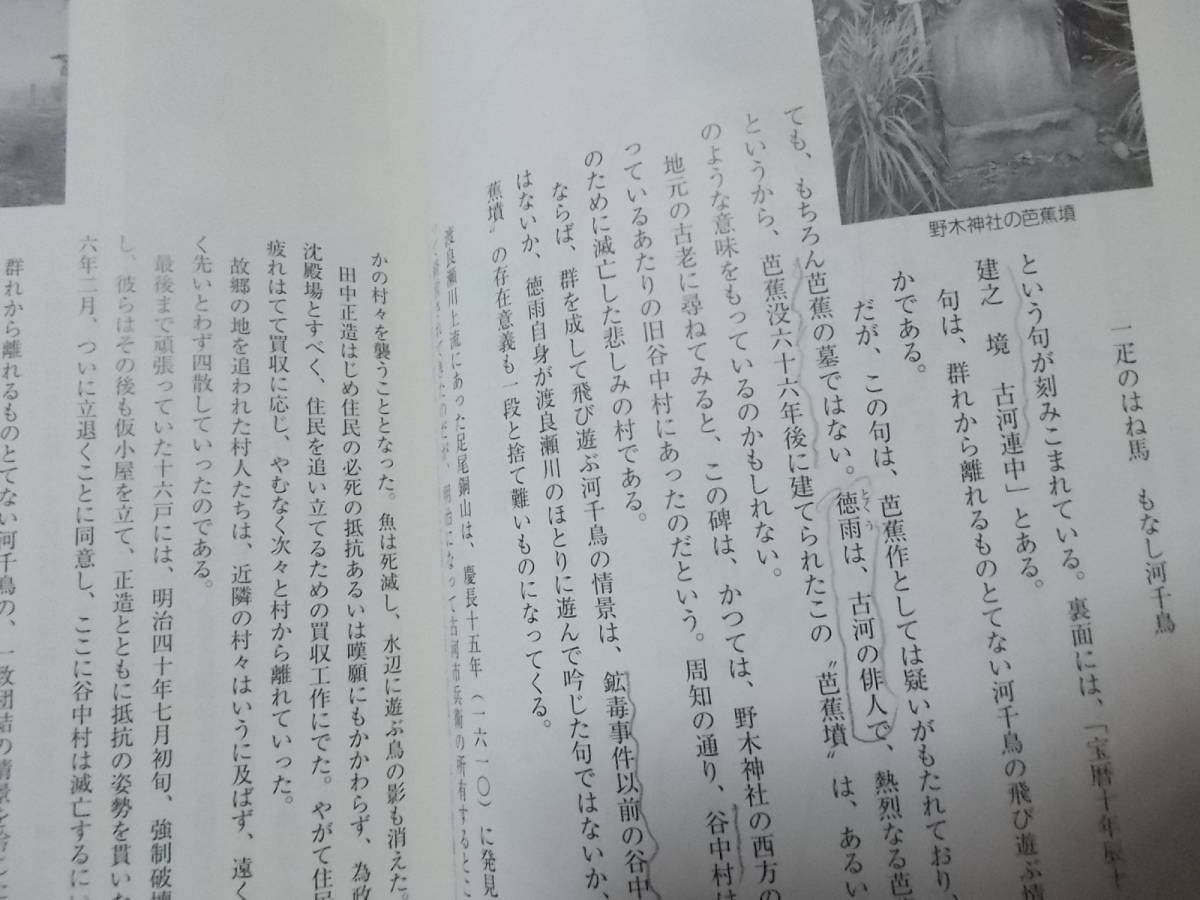 野木神社の芭蕉墳
一疋のはね馬 もなし河千鳥
という句が刻みこまれている。裏面には、「宝暦十年辰十
建之 境 古河連中」とある。
句は、群れから離れるものとてない河千鳥の飛び遊ぶ情
かである。
だが、この句は、芭蕉作としては疑いがもたれており、
徳雨は、古河の俳人で、熱烈なる芭
とくう
ても、もちろん芭蕉の墓ではない。
というから、芭蕉没六十六年後に建てられたこの〝芭蕉墳〟は、あるい
のような意味をもっているのかもしれない。
地元の古老に尋ねてみると、この碑は、かつては、野木神社の西方の
っているあたりの旧谷中村にあったのだという。周知の通り、谷中村は
のために滅亡した悲しみの村である。
ならば、群を成して飛び遊ぶ河千鳥の情景は、鉱毒事件以前の谷中
はないか、徳雨自身が渡良瀬川のほとりに遊んで吟じた句ではないか、
蕉墳〟の存在意義も一段と捨て難いものになってくる。
渡良瀬川上流にあった足尾銅山は、慶長十五年(一六一〇)に発見
明治になって古河市兵衛の所有するとこ
かの村々を襲うこととなった。魚は死滅し、水辺に遊ぶ鳥の影も消えた。
田中正造はじめ住民の必死の抵抗あるいは嘆願にもかかわらず、為政
沈殿場とすべく、住民を追い立てるための買収工作にでた。やがて住民
疲れはてて買収に応じ、やむなく次々と村から離れていった。
故郷の地を追われた村人たちは、近隣の村々はいうに及ばず、遠く
く先いとわず四散していったのである。
最後まで頑張っていた十六戸には、明治四十年七月初旬、強制破壊
し、彼らはその後も仮小屋を立て、正造とともに抵抗の姿勢を貫いた
六年二月、ついに立退くことに同意し、ここに谷中村は滅亡するにい
群れから離れるものとてない河千鳥の、一致団結の情景を